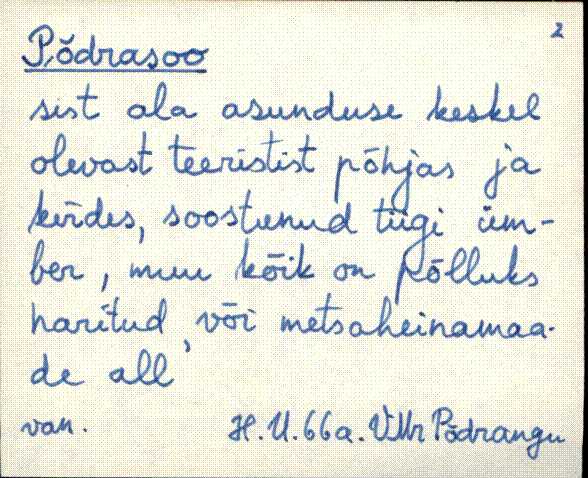 2
Põdrasoo
sist ala asunduse keskel
olevast teeristist põhjas ja
kirdes, soostunud tiigi üm-
ber, muu kõik on põlluks
haritud, või metsaheinamaa-
de all
van. H. U. 66a. VMr Põdrangu